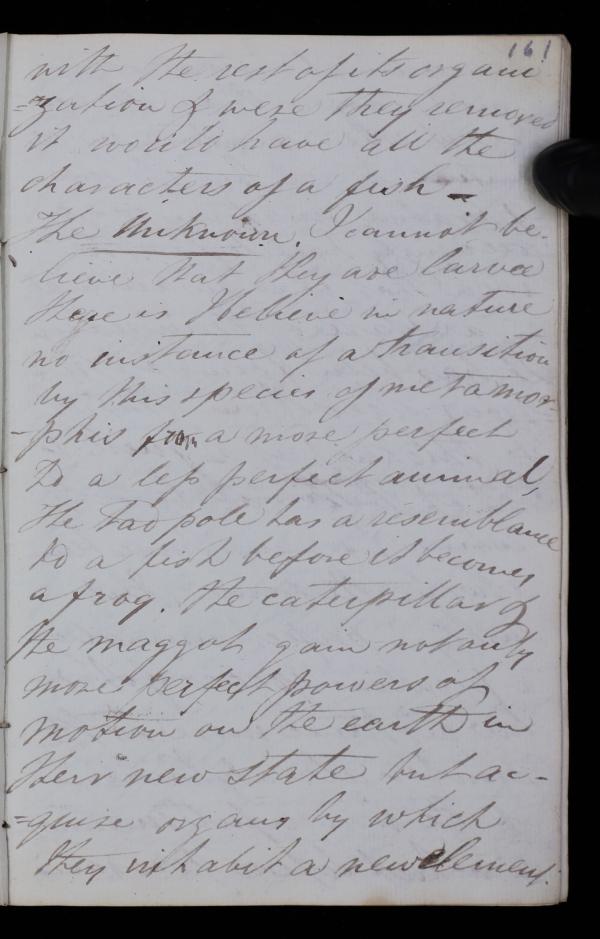 161
with the rest of its organi
=zation & were they removed
it would have all the
characters of a fish –
The Unknown. I cannot be-
lieve that they are larvae
there is I believe in nature
no instance of a transition
by this species of metamor-
-phis from a more perfect
to a less perfect animal,
The tadpole has a resemblance
to a fish before it becomes
a frog. the caterpillar &
the maggot gain not only
more perfect powers of
motion on the earth in
their new state but ac-
=quire organs by which
they inhabit a new element.